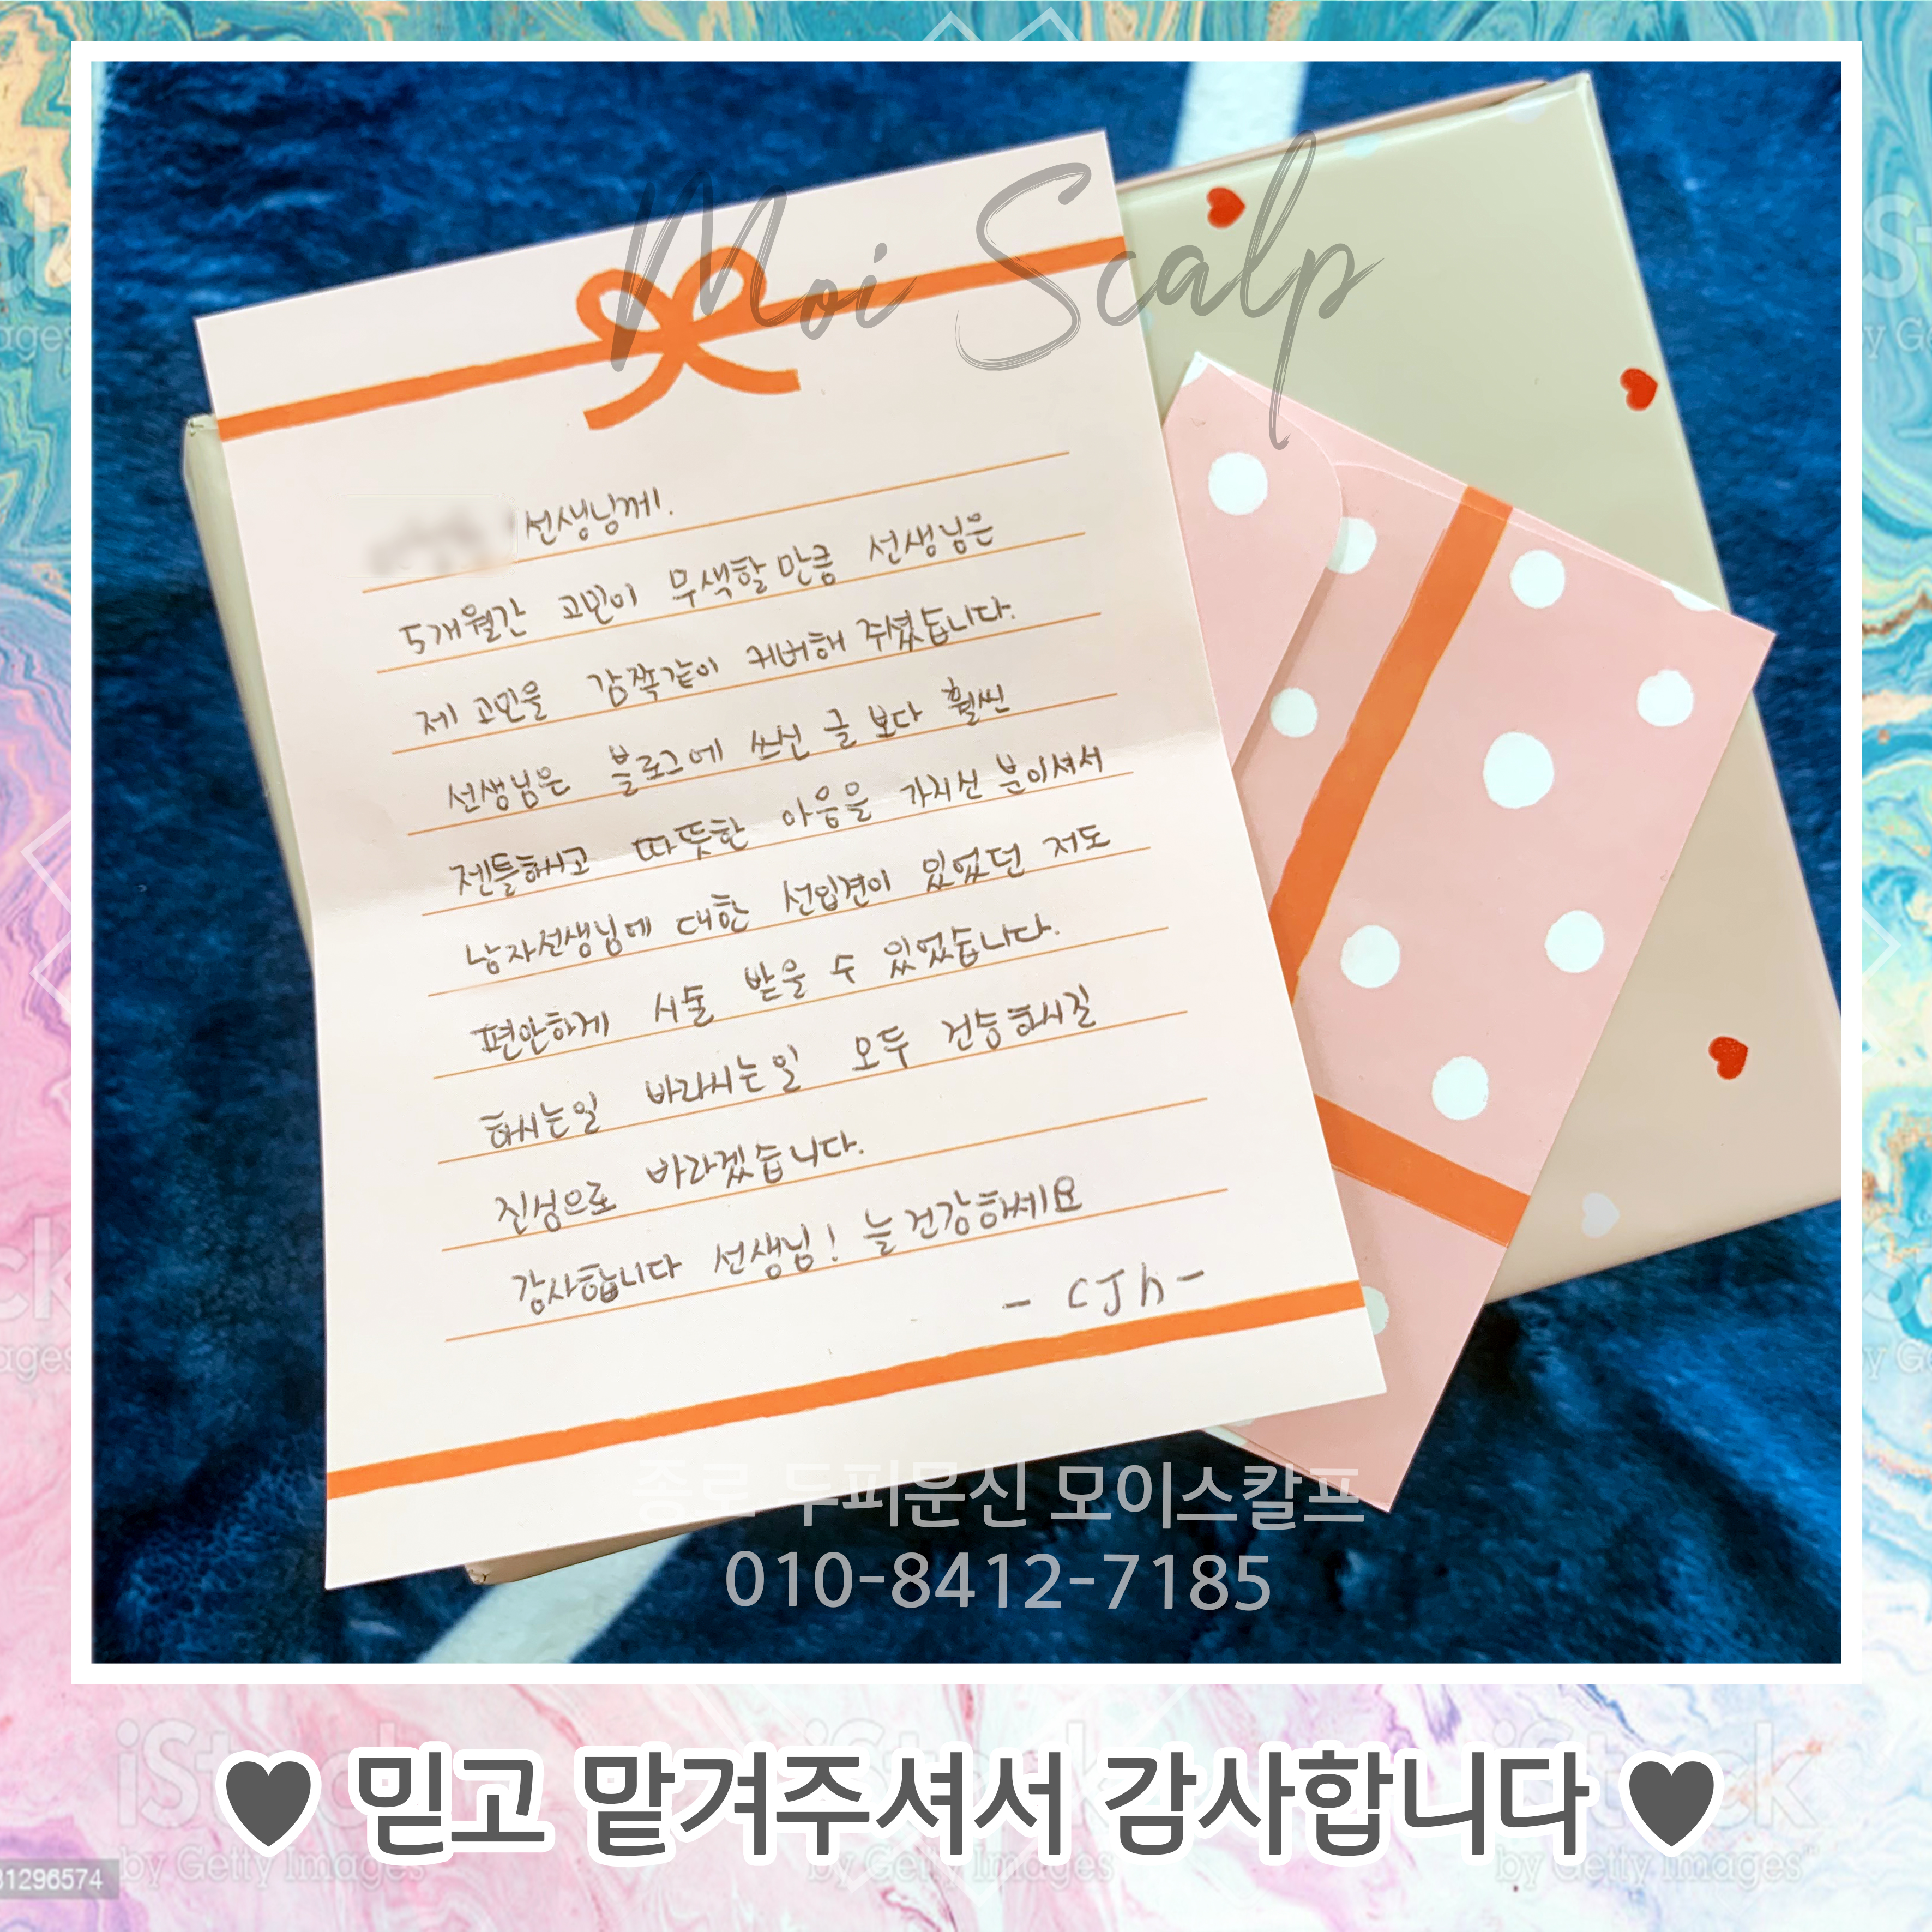 Moi Scalp
선생님께.
5개월간 고민이 무색할만큼 선생님은
제 고민을 감쪽같이 커버해 주셨습니다.
선생님은 블로그에 쓰신 글 보다 훨씬
젠틀하시고 따뜻한 마음을 가지신 분이셔서
남자선생님에 대한 선입견이 있었던 저도
편안하게 시술 받을 수 있었습니다.
하시는일 바라시는일 모두 건승하시길
진심으로 바라겠습니다.
감사합니다 선생님! 늘 건강하세요
- CJh -
종로 두피문신 모이스칼프
010-8412-7185
♥ 믿고 맡겨주셔서 감사합니다 ♥
iStock
by Getty Images
iStock
by Getty Images™
31296574